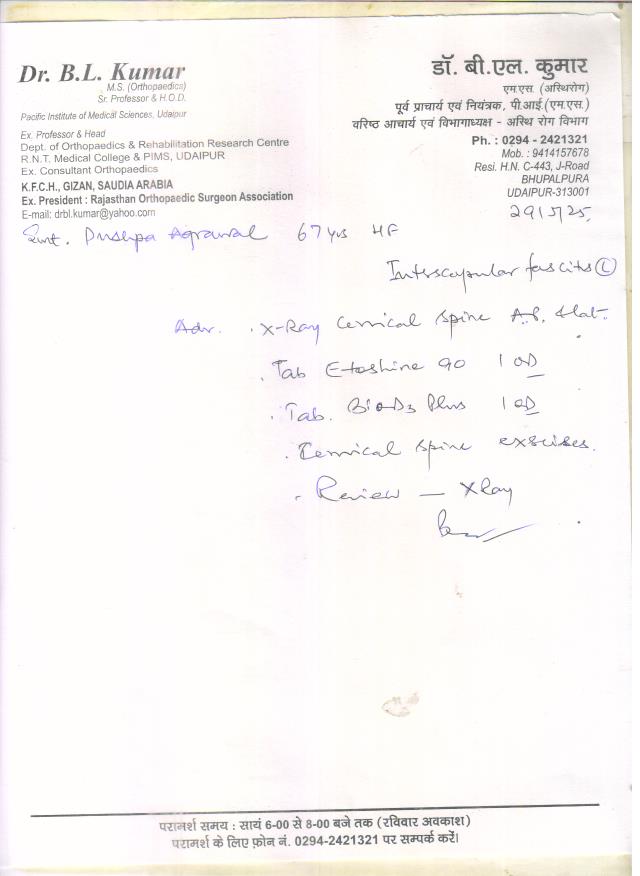 Dr. B.L. Kumar
M.S. (Orthopaedics)
Sr. Professor & H.O.D.
Pacific Institute of Medical Sciences, Udaipur
Ex. Professor & Head
Dept. of Orthopaedics & Rehabilitation Research Centre
R.N.T. Medical College & PIMS, UDAIPUR
Ex. Consultant Orthopaedics
K.F.C.H., GIZAN, SAUDIA ARABIA
Ex. President : Rajasthan Orthopaedic Surgeon Association
E-mail: drbl.kumar@yahoo.com
डॉ. बी.एल. कुमार
एम.एस. (अस्थिरोग)
पूर्व प्राचार्य एवं नियंत्रक, पी.आई.(एम.एस.)
वरिष्ठ आचार्य एवं विभागाध्यक्ष - अस्थि रोग विभाग
Ph. : 0294 - 2421321
Mob. : 9414157678
Resi. H.N. C-443, J-Road
BHUPALPURA
UDAIPUR-313001
29/5/25
Smt. Pushpa Agrawal 67 yrs HF
Interscapular fascits (L)
Adv. X-Ray Cervical Spine A.P. & lat.
Tab Etoshine 90 1 OD
Tab. BioD3 Plus 1 OD
Cervical spine exscises.
Review — XRay
परामर्श समय : सायं 6-00 से 8-00 बजे तक (रविवार अवकाश)
परामर्श के लिए फ़ोन नं. 0294-2421321 पर सम्पर्क करें।